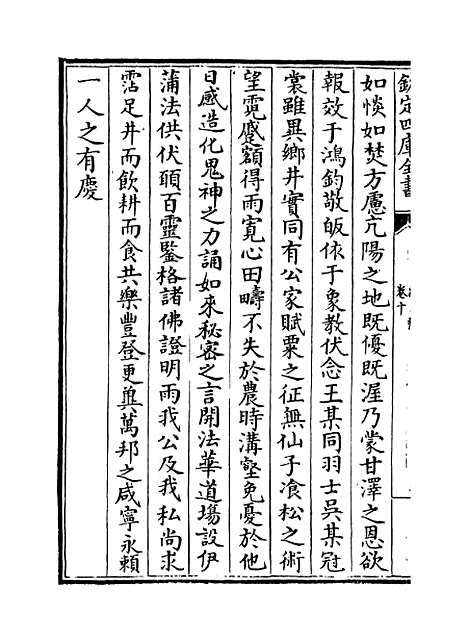 欽定四庫全書
卷十
如惔如焚方慮亢陽之地既優既渥乃蒙甘澤之恩欲
報效于鴻鈞敬皈依于象教伏念王某同羽士吳某冠
裳雖異鄉井實同有公家賦粟之征無仙子飡松之術
望霓蹙額得雨寛心田疇不失於農時溝壑免憂於他
日感造化鬼神之力誦如來秘密之言開法華道場設伊
蒲法供伏願百靈鍳格諸佛證明雨我公及我私尚求
霑足井而飲耕而食共樂豐登更兾萬邦之咸寧永賴
一人之有慶